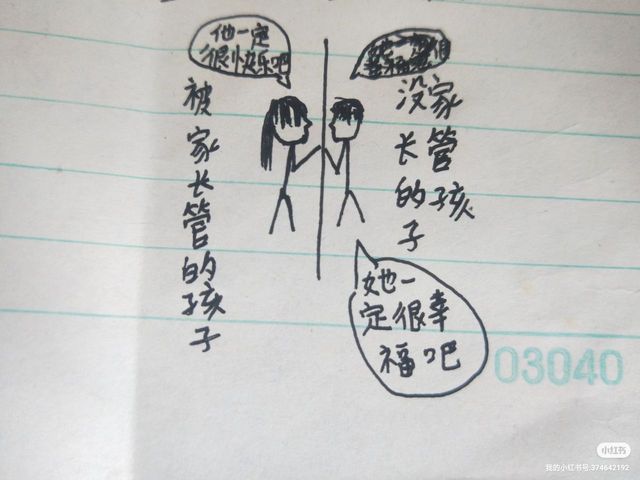 他一定
很快乐吧
被家长管的孩子
没家
长管
的孩
子
她一
定很幸
福吧
03040
小红书
我的小红书号:374642192